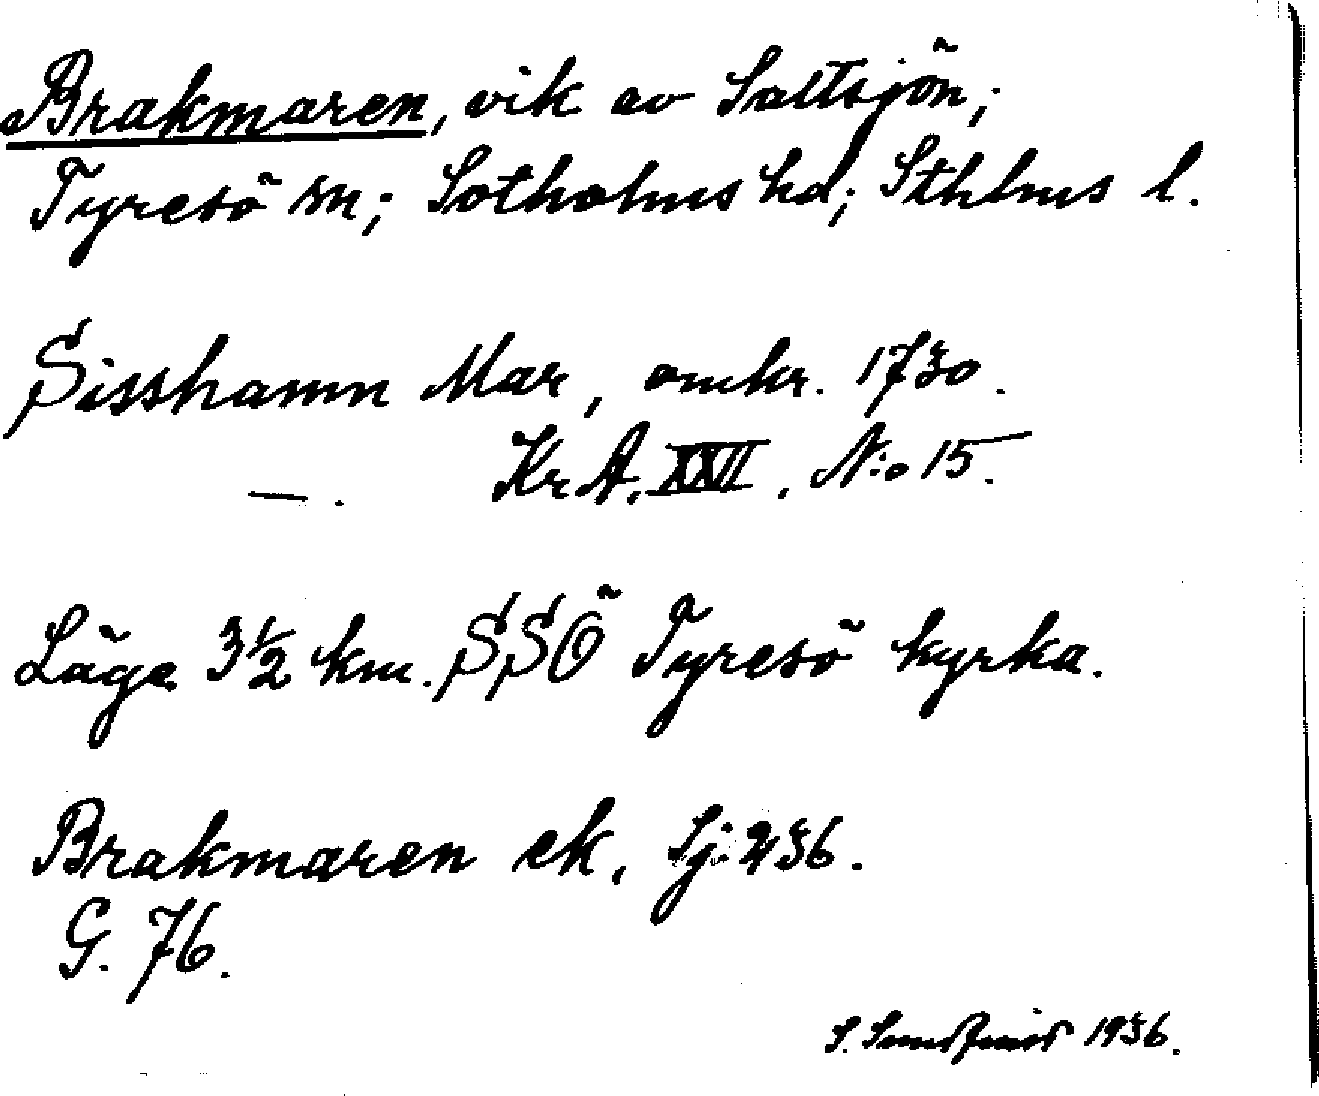 Brakmaren, vik av Saltsjön;
Tyresö sn; Sotholms hd; Sthlms l.
Sisshamn Mar, omkr. 1730.
—. Kr A. XXII. N:o 15.
Läge 3½ km. SSÖ Tyresö kyrka.
Brakmaren ek. Sj. 236.
G. 76.
S. Sundqvist 1936.